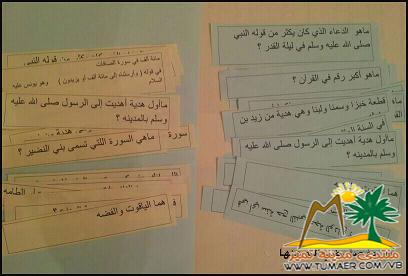 ماهو الدعاء الذي كان يكثر من قوله النبي
صلى الله عليه وسلم في ليلة القدر ؟
ماهو أكبر رقم في القرآن ؟
قطعة خبزا وسمنا ولبنا وهي هدية من زيد بن
في السنة
ماأول هدية أهديت إلى الرسول صلى الله عليه
وسلم بالمدينه ؟
قوله النبي
مائة ألف في سورة الصافات
في قوله ( وأرسلناه إلى مائة ألف أو يزيدون ) وهو يونس عليه
السلام
ماأول هدية أهديت إلى الرسول صلى الله عليه
وسلم بالمدينه ؟
سورة
ماهي السورة اللتي تسمى بني النضير ؟
الطامه
هما الياقوت والفضه
WWW.TUMAER.COM/VB